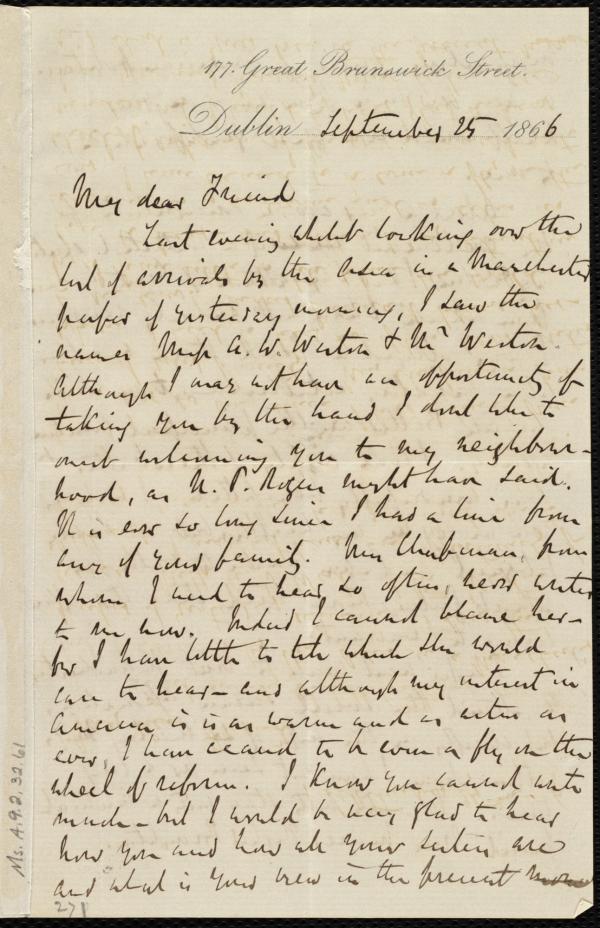 177. Great Brunswick Street.
Dublin September 25 1866
My dear Friend
Last evening whilst looking over the
list of arrivals by the Asia in a Manchester
paper of yesterday morning, I saw the
names Miss A. W. Weston & Mr Weston.
Although I may not have an opportunity of
taking you by the hand I dont like to
omit welcoming you to my neighbour-
hood, as N. P. Rogers might have said.
It is ever so long since I had a line from
any of your family. Mrs Chapman, from
whom I used to hear so often, never writes
to me now. Indeed I cannot blame her -
for I have little to tell which she would
care to hear - and although my interest in
America is is as warm and as active as
ever, I have ceased to be even a fly on the
wheel of reform. I know you cannot write
much - but I would be very glad to hear
how you and how all your sisters are
and what is your view in the present
271
Ms. A.9.2.32.61